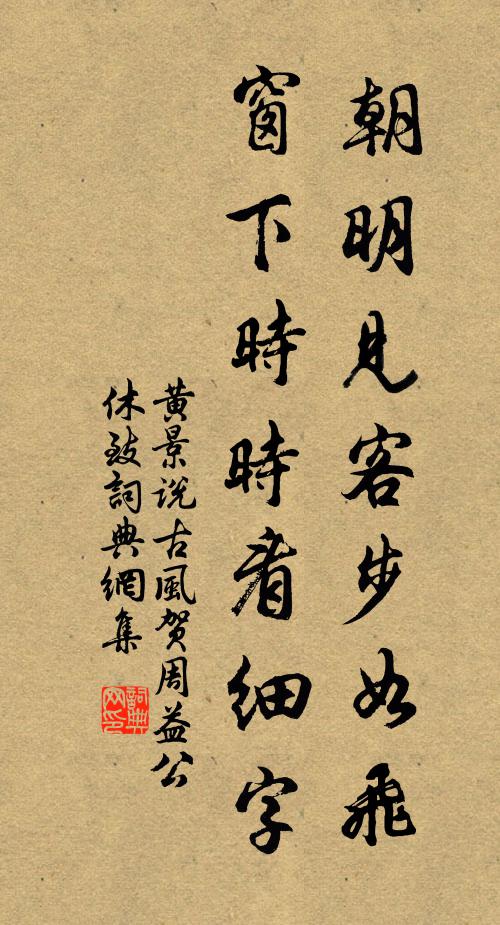 朝明見客步如飛
窗下時時看細字
黄景说古風贺周益公
休致詞典網集
詞典网印